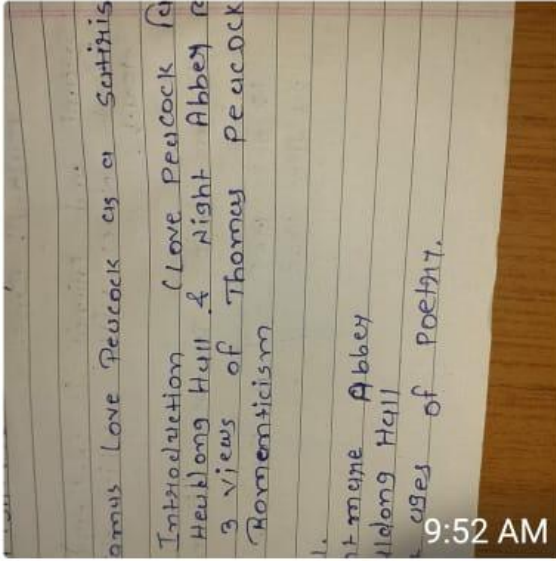 omas Love Peacock as a Satiris
Introduction (Love Peacock
Headlong Hall & Night Abbey
3 views of Thomas Peacock
Romenticism
1.
tmare Abbey
dlong Hall
ages of Poetry.
9:52 AM